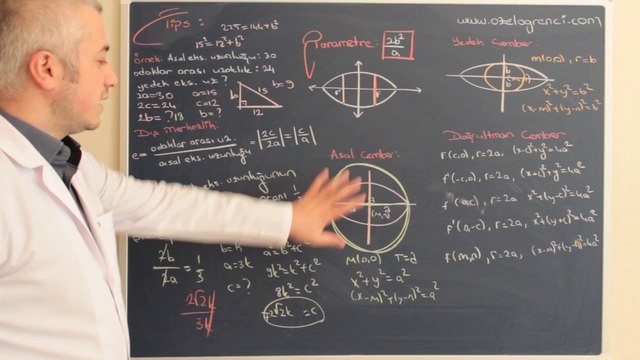 Tips:
225 = 144 + b²
15² = 12² + b²
örnek: Asal eks. uzunluğu: 30
odaklar arası uzaklık: 24
yedek eks. uz?
2a=30 a=15
2c=24 c=12
2b=?18 b=?
b 15 b=9
12
Dış Merkezlik.
e = odaklar arası uz. / asal eks. uzunluğu = |2c/2a| = |c/a|
eks. uzunluğunun
2b/2a = 1/3
b=k
a=3k
c=?
a² = b² + c²
9k² = k² + c²
8k² = c²
2√2k = c
2√2k/3k
Parametre: 2b²/a
Asal Çember:
M(0,0) r=a
x² + y² = a²
(x-m)² + (y-n)² = a²
www.ozelogrenci.com
Yedek Çember
m(0,0), r=b
x² + y² = b²
(x-m)² + (y-n)² = b²
Doğrultman Çember
F(c,0), r=2a, (x-c)²+y²=4a²
F'(-c,0), r=2a, (x+c)²+y²=4a²
F(0,c), r=2a x²+(y-c)²=4a²
F'(0,-c), r=2a, x²+(y+c)²=4a²
F(m,n), r=2a, (x-m)²+(y-n)²=4a²